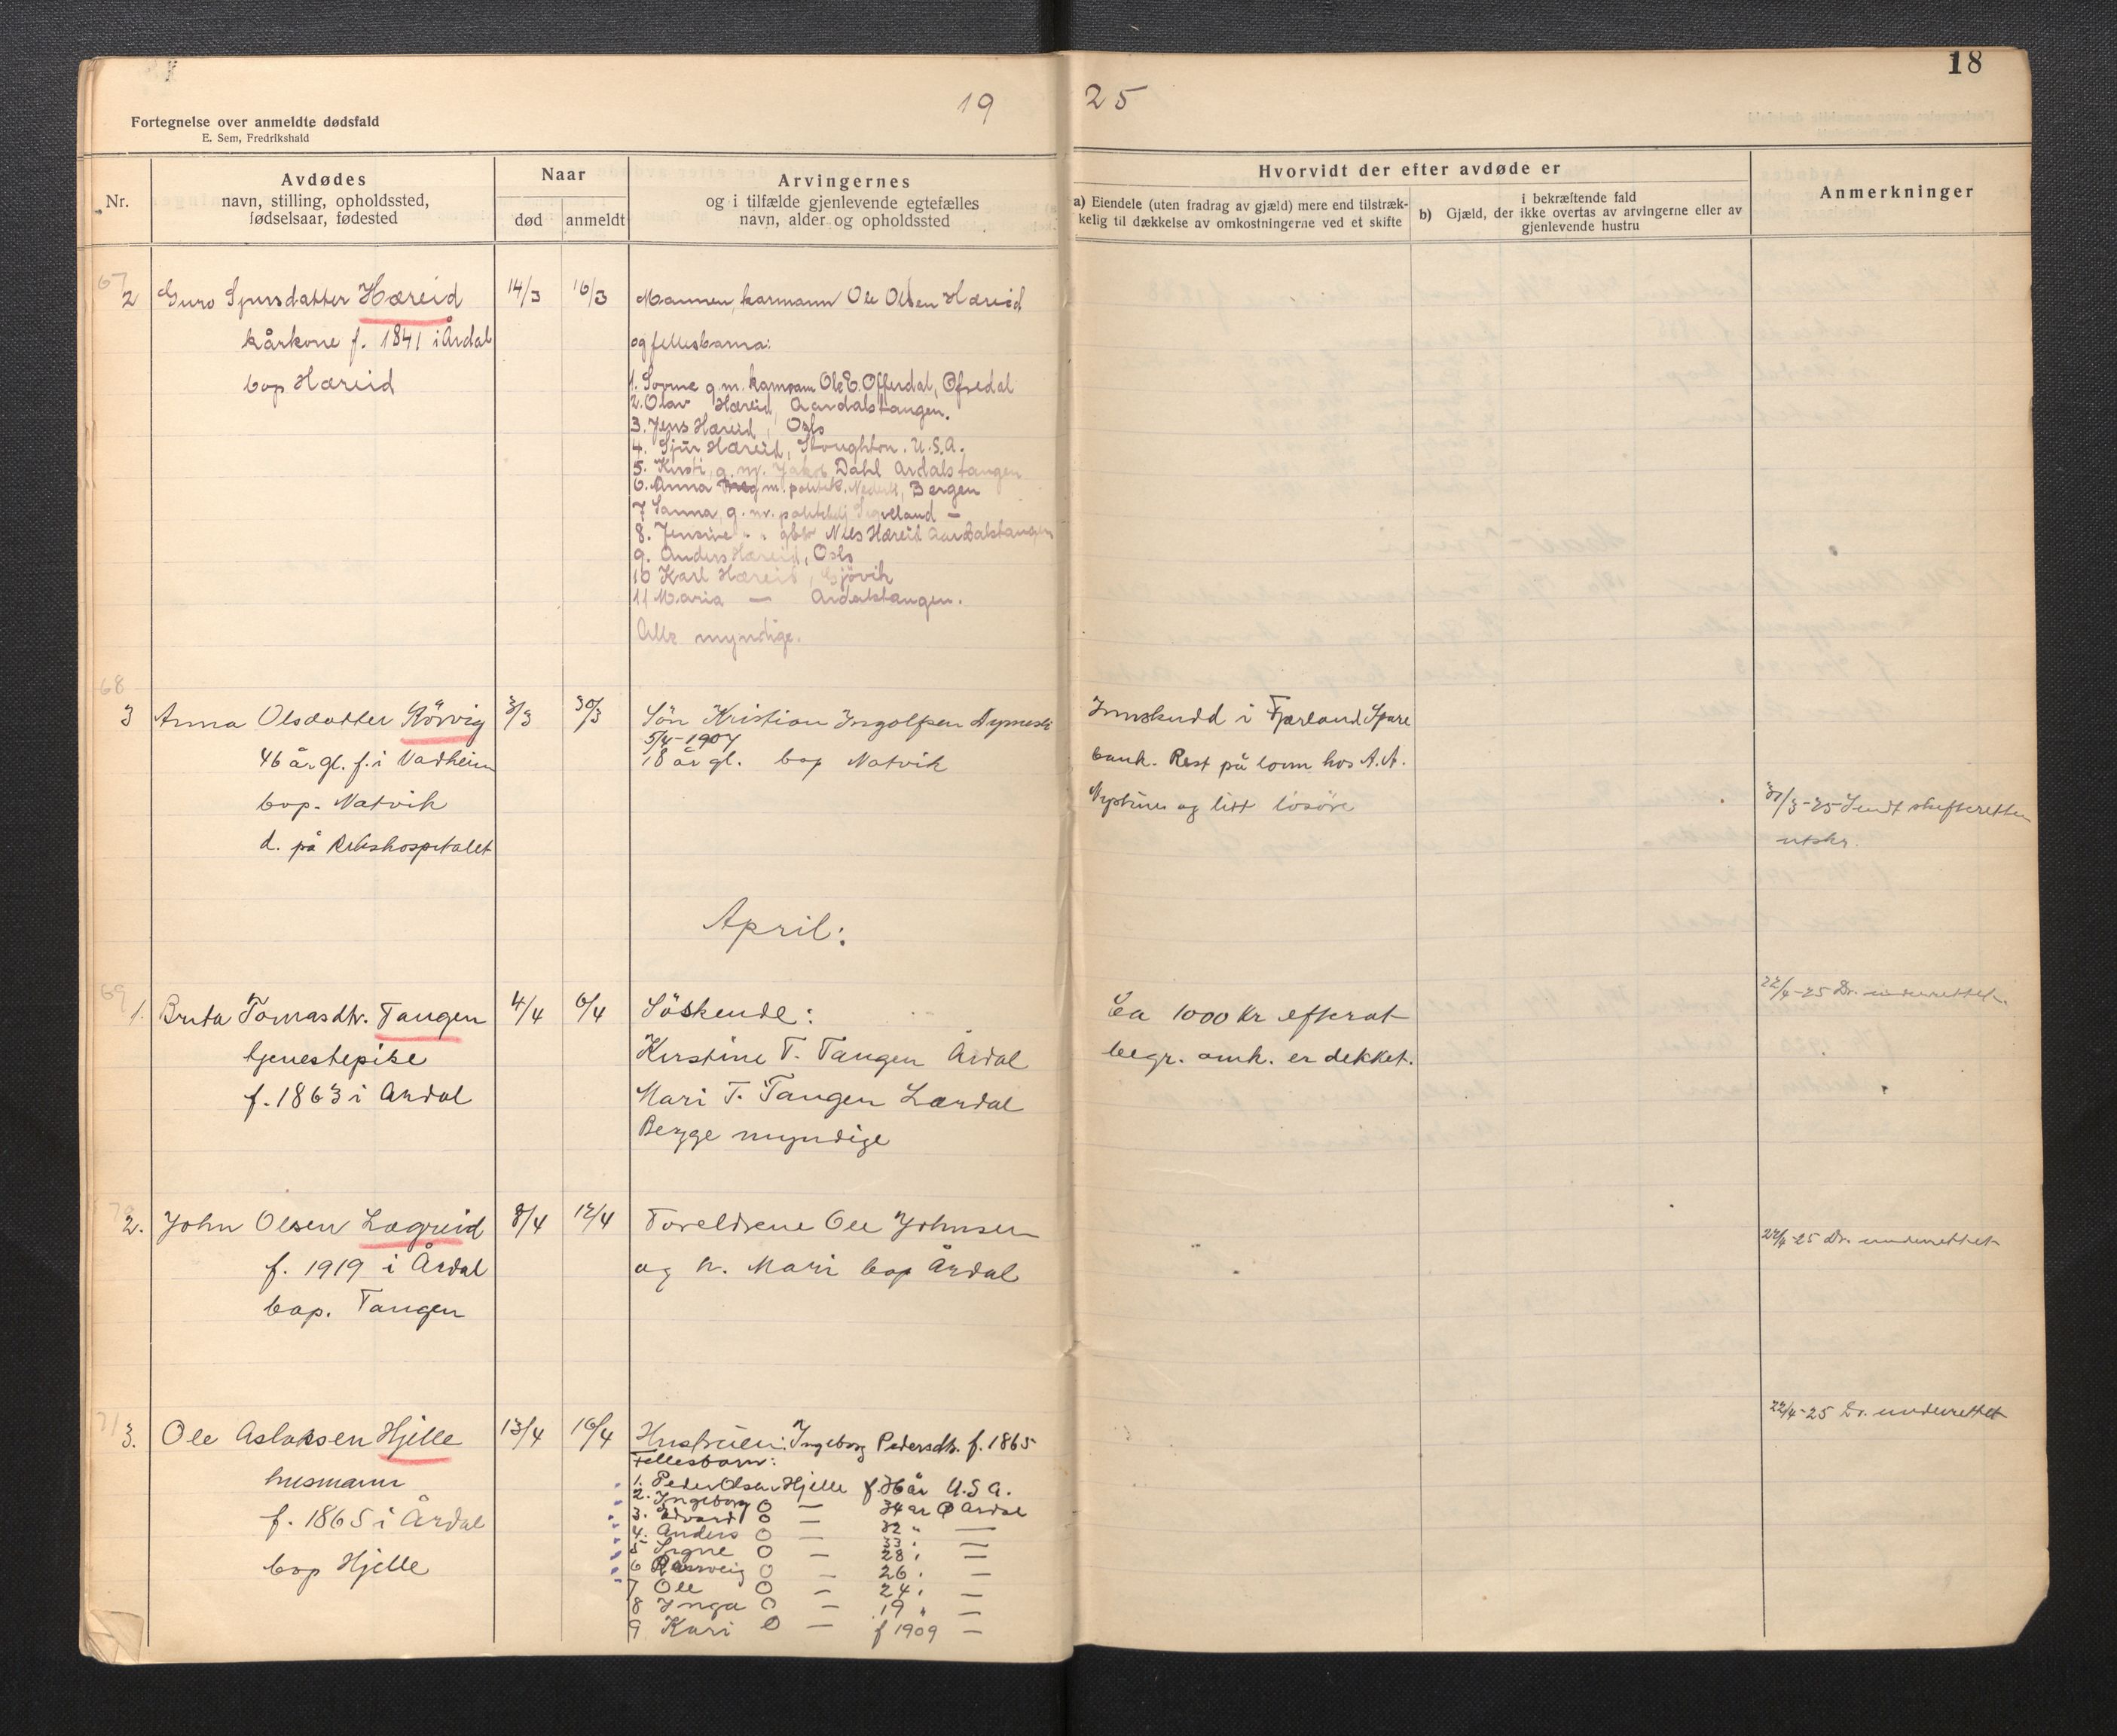 18
19 25
Fortegnelse over anmeldte dødsfald
E. Sem, Fredrikshald
Nr.
Avdødes
navn, stilling, opholdssted,
fødselsaar, fødested
Naar
død
anmeldt
Arvingernes
og i tilfælde gjenlevende egtefælles
navn, alder og opholdssted
Hvorvidt der efter avdøde er
a) Eiendele (uten fradrag av gjæld) mere end tilstræk-
kelig til dækkelse av omkostningerne ved et skifte
i bekræftende fald
b) Gjæld, der ikke overtas av arvingerne eller av
gjenlevende hustru
Anmerkninger
67
2 Guro Sjursdatter Hæreid
kårkone f. 1841 i Årdal
bop Hæreid
14/3 16/3
Mannen, karmann Ole Olsen Hæreid
og fellesbarna:
1. g.m. Ole E. Offerdal, Ofredal
2. Olav Hæreid, Aardalstangen.
3. Jens Hæreid, Oslo
4. Sjur Hæreid, Stoughton. U.S.A.
5. Kirsti, g.m. Jakob Dahl Ardalstangen
6. Anna g m. Bergen
7 Sanna, g.m. —
8. Jensine " " gbr Nils Hæreid Aardalstangen
9. Anders Hæreid, Oslo
10 Karl Hæreid, Gjövik
11 Maria — Ardalstangen.
Alle myndige.
68
3 Anna Olsdatter Rörvig
46 år gl. f. i Vadheim
bop. Natvik
d. på Rikshospitalet
3/3 30/3
Sön Kristian Ingolfsen
5/4-1907
18 år gl. bop Natvik
Innskudd i Fjærland Spare
bank. Rest på lovn hos A.A.
og litt lösöre
31/3-25 Sendt skifteretten
utskr.
April:
69
1. Brita Tomasdtr. Tangen
tjenestepike
f. 1863 i Ardal
4/4 6/4
Söskende:
Kirstine T. Tangen Årdal
Mari T. Tangen Lærdal
Begge myndige
Ca 1000 Kr efterat
begr. omk. er dekket.
22/4-25 Dr. underrettet
70
2. John Olsen Lægreid
f. 1919 i Årdal
bop. Tangen
8/4 12/4
Foreldrene Ole Johnsen
og h. Mari bop Årdal
22/4-25 Dr. underrettet
71
3. Ole Aslaksen Hjelle
husmann
f. 1865 i Årdal
bop Hjelle
13/4 16/4
Hustruen: Ingeborg Pedersdtr. f. 1865
Fellesbarn:
1. Peder Olsen Hjelle 36 år U.S.A.
2. Ingeborg O — 34 år Årdal
3. Edvard O — 32 " —
4. Anders O — 33 " —
5 Signe O — 28 " —
6 O — 26 " —
7 Ole O — 24 " —
8 Inga O — 19 " —
9 Kari O — f 1909 —
22/4-25 Dr. underrettet